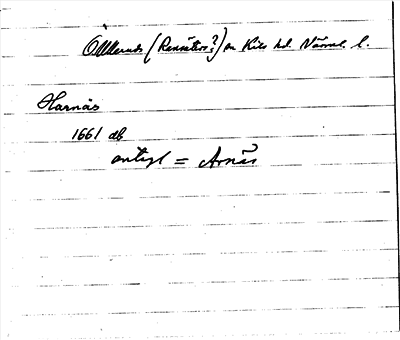 Ö Ullerud (Ransäter?) sn Kils hd. Värml. l.
Harnäs
1661 db
antagl = Arnäs